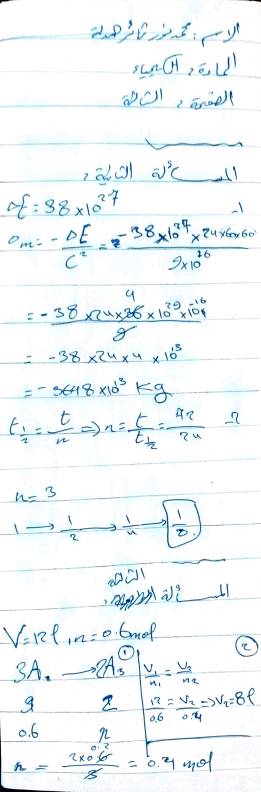 الاسم: محمد نور ثائر هدلة
المادة: الكيمياء
الصفحة: الثالثة
المسألة الثانية:
ΔE = 38 × 10²⁷ -1
Δm = - ΔE / C² = -38 × 10²⁷ × 24 × 60 × 60 / 9 × 10¹⁶
= -38 × 24 × 36 × 10²⁹ × 10⁻¹⁶ / 9
4
= -38 × 24 × 4 × 10¹³
= -3648 × 10¹³ Kg
t½ = t / n ⇒ n = t / t½ = 72 / 24 -2
n = 3
1 → 1/2 → 1/4 → 1/8
المسألة الثالثة:
V = 12 l, n = 0.6 mol
① ②
3A₂ → 2A₃
3 2
0.6 n
n = 2 × 0.6 / 3 = 0.4 mol
0.2
V₁ / n₁ = V₂ / n₂
12 / 0.6 = V₂ / 0.4 ⇒ V₂ = 8 l